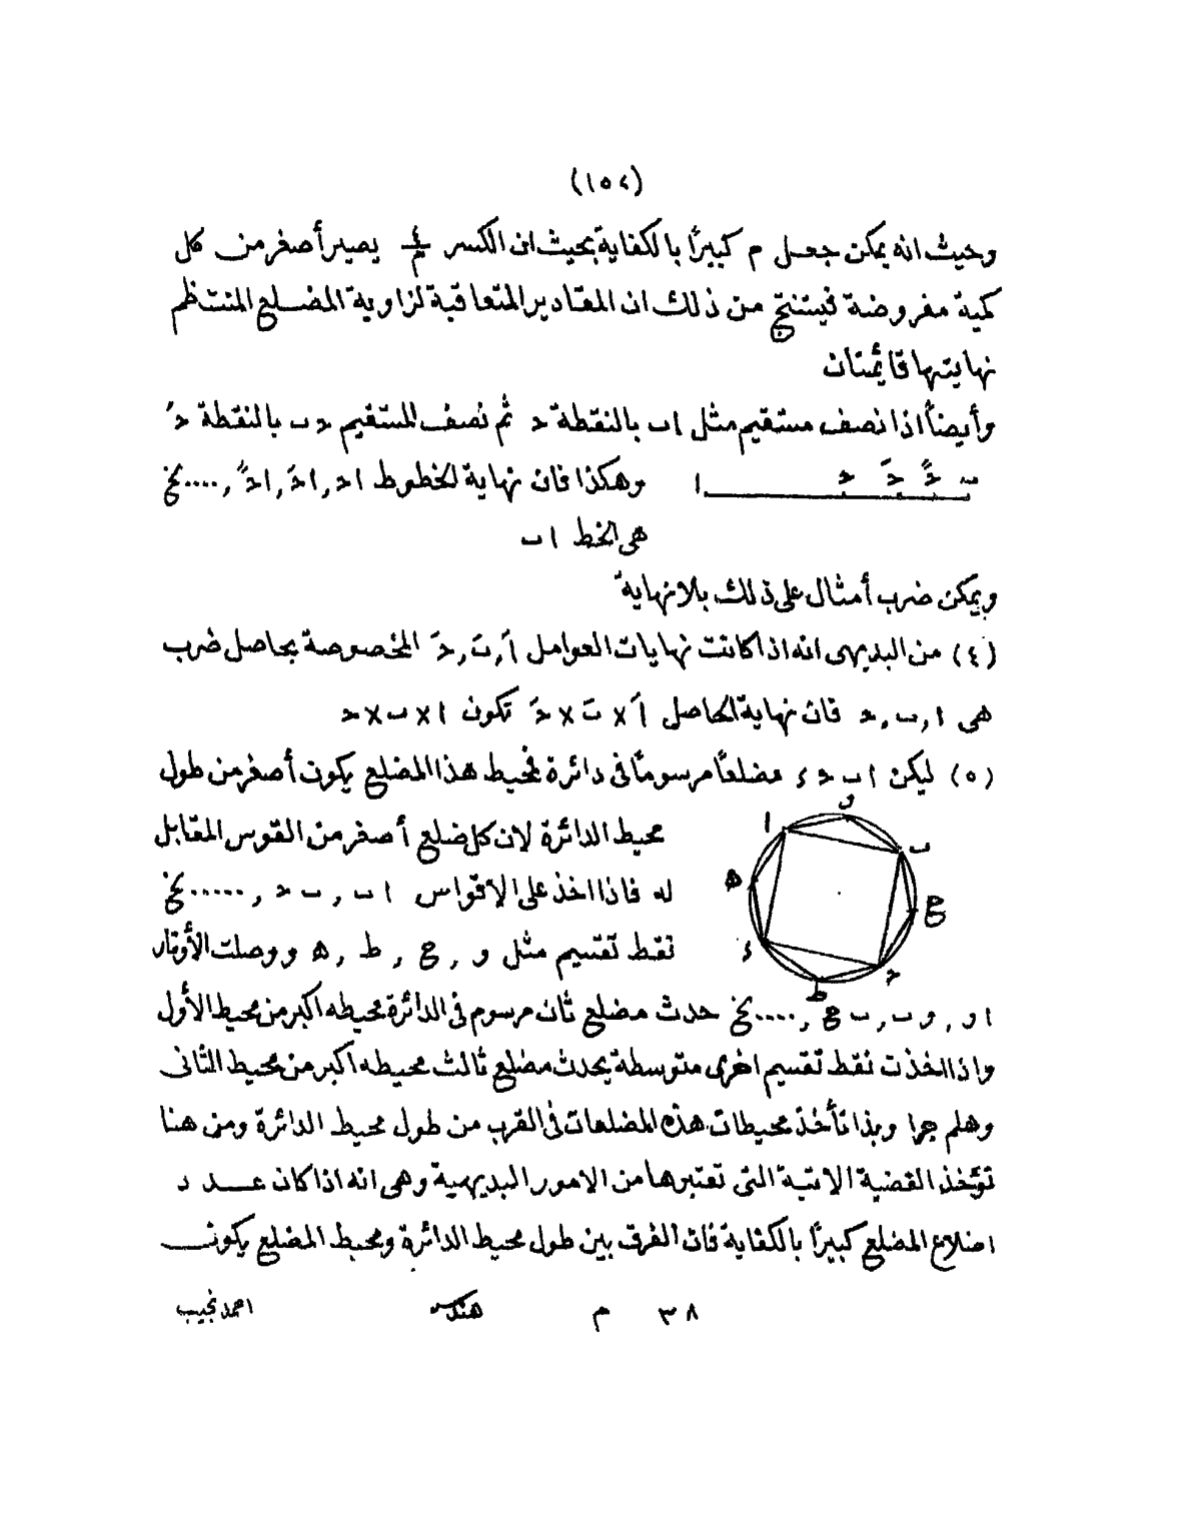 (١٥٢)
وحيث انه يمكن جعل م كبيرًا بالكفاية بحيث ان الكسر ٤/م يصير أصغر من كل
كمية مفروضة فينتج من ذلك ان المقادير المتعاقبة لزاوية المضلع المنتظم
نهايتها قائمتان
وأيضاً اذا نصف مستقيم مثل ا ب بالنقطة ح ثم نصف المستقيم ح ب بالنقطة حَ
ا ح حَ حً ب
وهكذا فان نهاية الخطوط ا ح , ا حَ , ا حً , .... الخ
هى الخط ا ب
ويمكن ضرب أمثال على ذلك بلا نهاية
(٤) من البديهى انه اذا كانت نهايات العوامل اَ , بَ , حَ المخصوصة بحاصل ضرب
هى ا , ب , ح فان نهاية الحاصل اَ × بَ × حَ تكون ا × ب × ح
(٥) ليكن ا ب ح ء مضلعاً مرسوماً فى دائرة فمحيط هذا المضلع يكون أصغر من طول
محيط الدائرة لان كل ضلع أصغر من القوس المقابل
له فاذا اخذ على الاقواس ا ب , ب ح , ..... الخ
نقط تقسيم مثل و , ج , ط , ه ووصلت الأوتار
ا و ب ج ح ط ء ه
ا و , و ب , ب ج , .... الخ حدث مضلع ثان مرسوم فى الدائرة محيطه اكبر من محيط الأول
واذا اخذت نقط تقسيم اخرى متوسطة يحدث مضلع ثالث محيطه اكبر من محيط الثانى
وهلم جرا وبذا تأخذ محيطات هذه المضلعات فى القرب من طول محيط الدائرة ومن هنا
تؤخذ القضية الاتية التى تعتبرها من الامور البديهية وهى انه اذا كان عدد
اضلاع المضلع كبيرًا بالكفاية فان الفرق بين طول محيط الدائرة ومحيط المضلع يكون
٣٨ م هندسه احمد نجيب